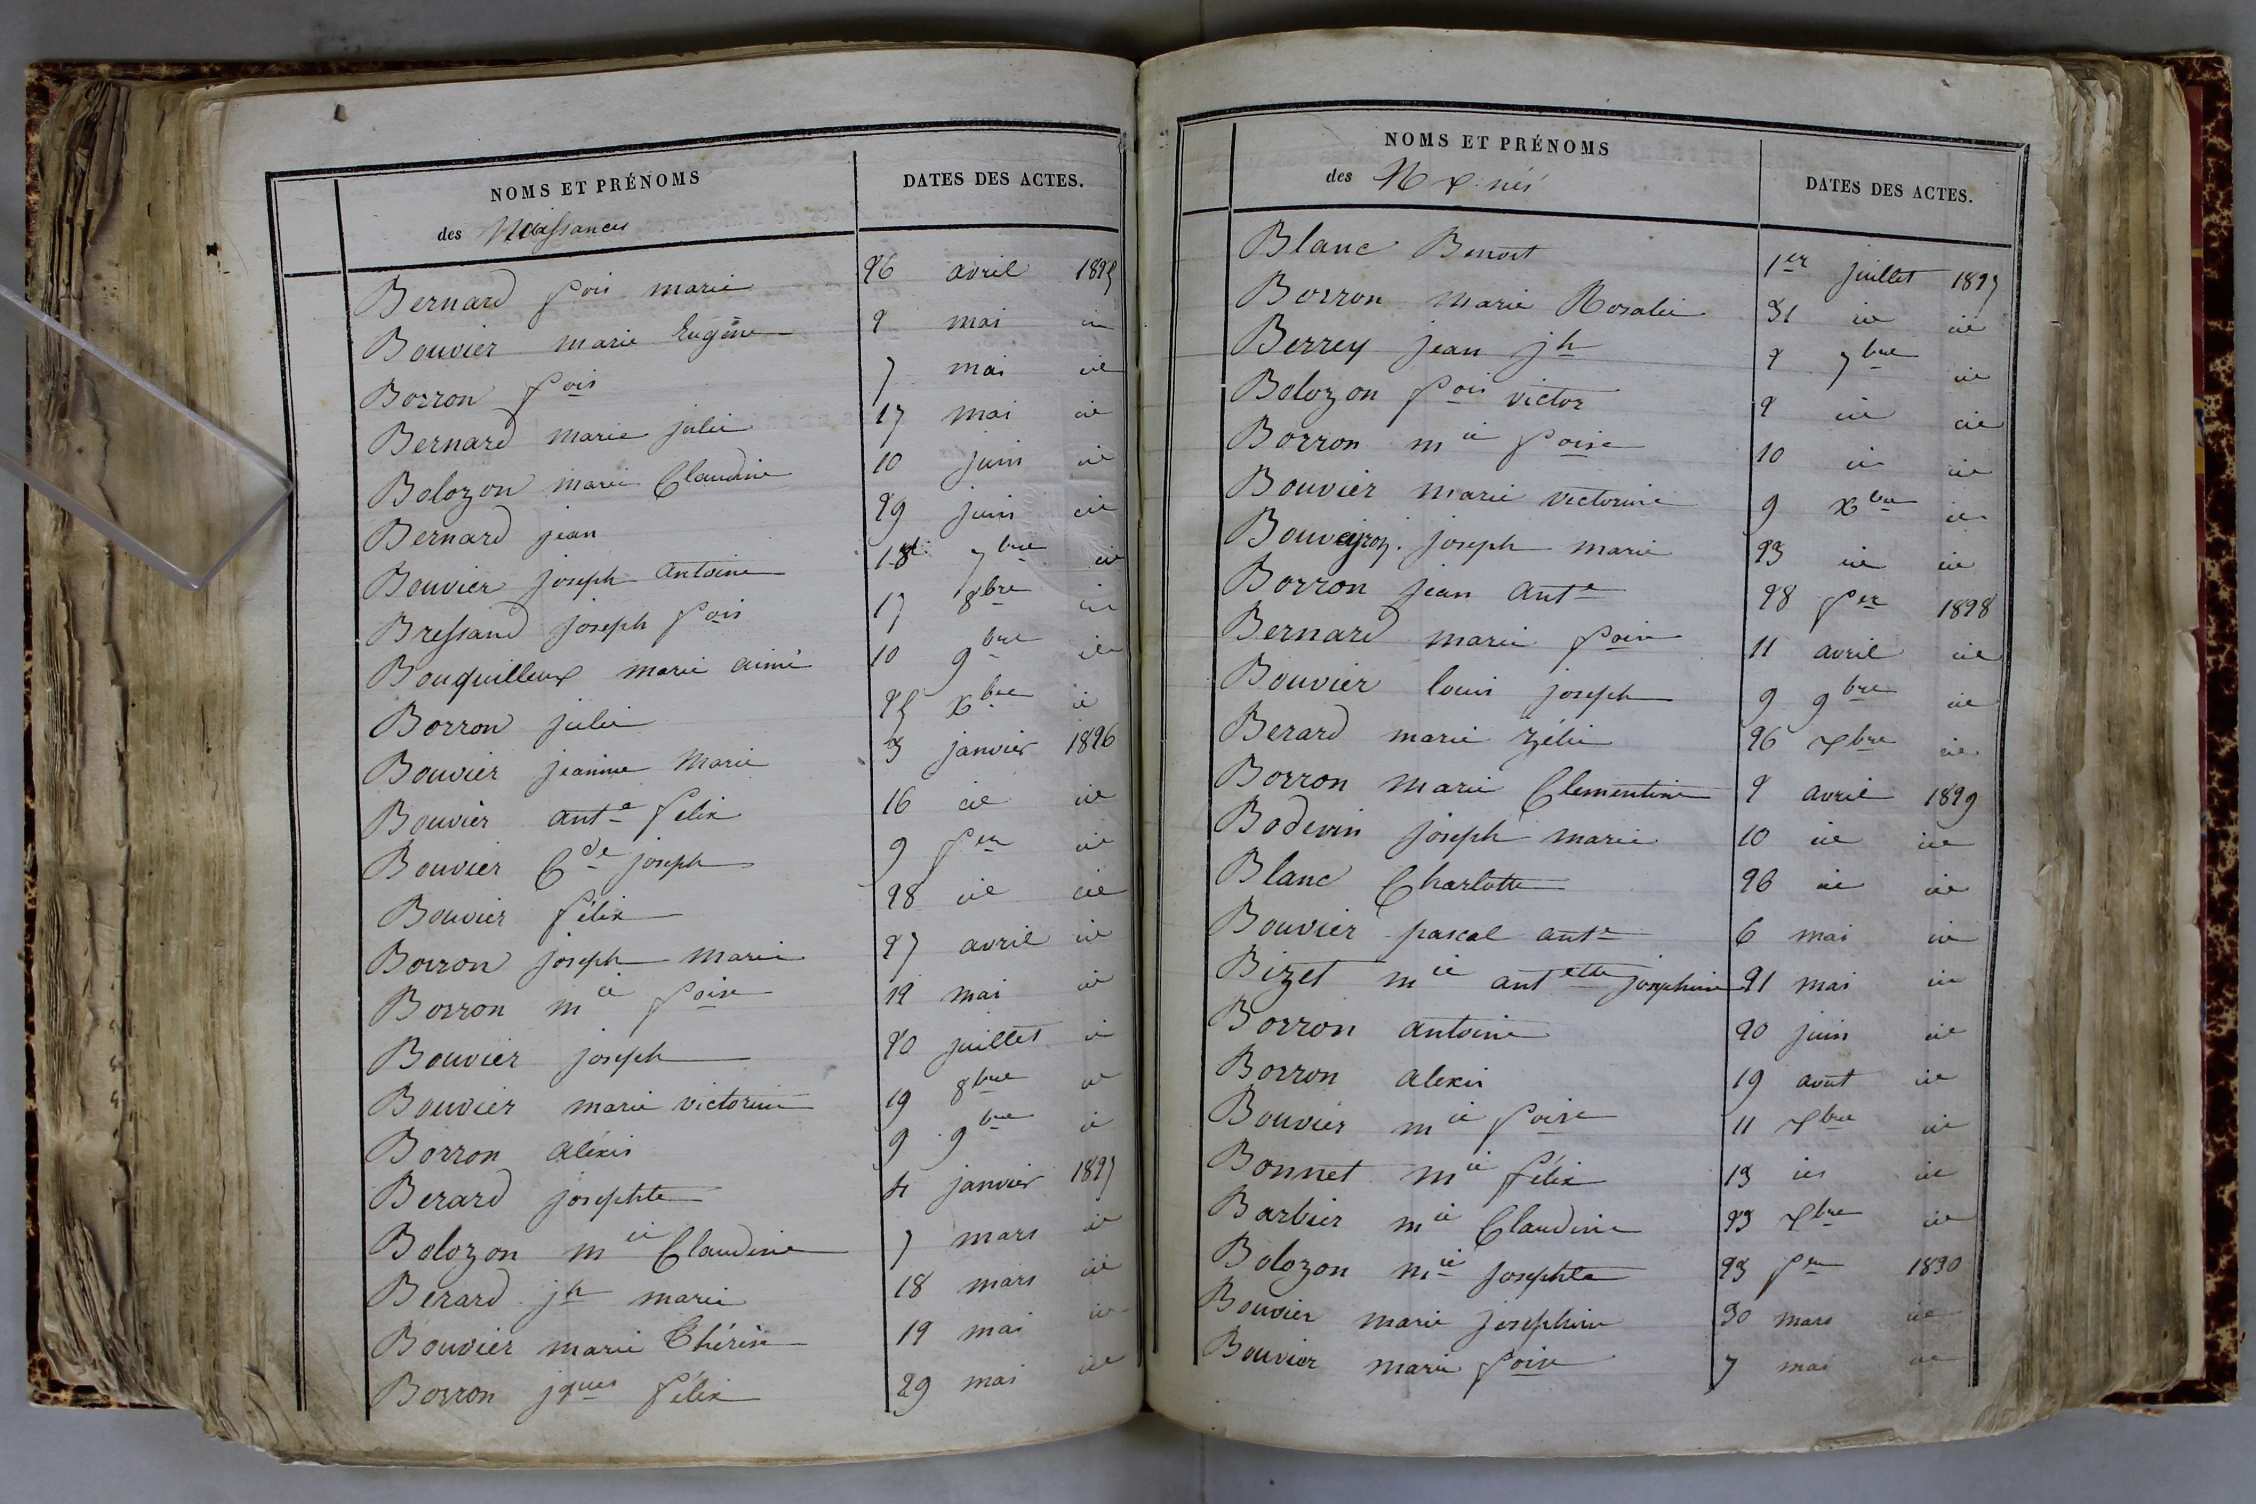 NOMS ET PRÉNOMS
DATES DES ACTES.
des Naissances
Bernard fois marie 26 avril 1825
Bouvier marie Eugène 2 mai id
Borron fois 7 mai id
Bernard marie julie 17 mai id
Bolozon marie Claudine 10 juin id
Bernard jean 29 juin id
Bouvier joseph antoine 18 7bre id
Bressand joseph fois 17 8bre id
Bouquilleux marie aimé 10 9bre id
Borron julie 25 Xbre id
Bouvier jeanne Marie 3 janvier 1826
Bouvier ante félix 16 id id
Bouvier Cde joseph 9 fer id
Bouvier félix 28 id id
Borron joseph Marie 27 avril id
Borron mie foise 12 mai id
Bouvier joseph 20 juillet id
Bouvier marie victorine 19 8bre id
Borron aléxis 9 9bre id
Berard josephte 4 janvier 1827
Bolozon mie Claudine 7 mars id
Berard jh marie 18 mars id
Bouvier marie Thérèse 19 mai id
Borron jques félix 29 mai id
NOMS ET PRÉNOMS
DATES DES ACTES.
des N & nés
Blanc Benoit 1er juillet 1827
Borron Marie Rosalie 31 id id
Berrey jean jh 2 7bre id
Bolozon fois victor 2 id id
Borron mie foise 10 id id
Bouvier marie victorine 9 Xbre id
Bouveyron joseph marie 23 id id
Borron jean ante 28 fer 1828
Bernard marie foise 11 avril id
Bouvier louis joseph 9 9bre id
Berard marie zélie 26 Xbre id
Borron Marie Clementine 2 avril 1829
Bodevin joseph marie 10 id id
Blanc Charlotte 26 id id
Bouvier pascal ante 6 mai id
Bizet mie antette josephine 21 mai id
Borron antoine 20 juin id
Borron alexis 19 août id
Bouvier mie foise 11 Xbre id
Bonnet mie félix 13 id id
Barbier mie Claudine 23 Xbre id
Bolozon mie josephte 23 fer 1830
Bouvier marie josephine 30 mars id
Bouvier marie foise 7 mai id